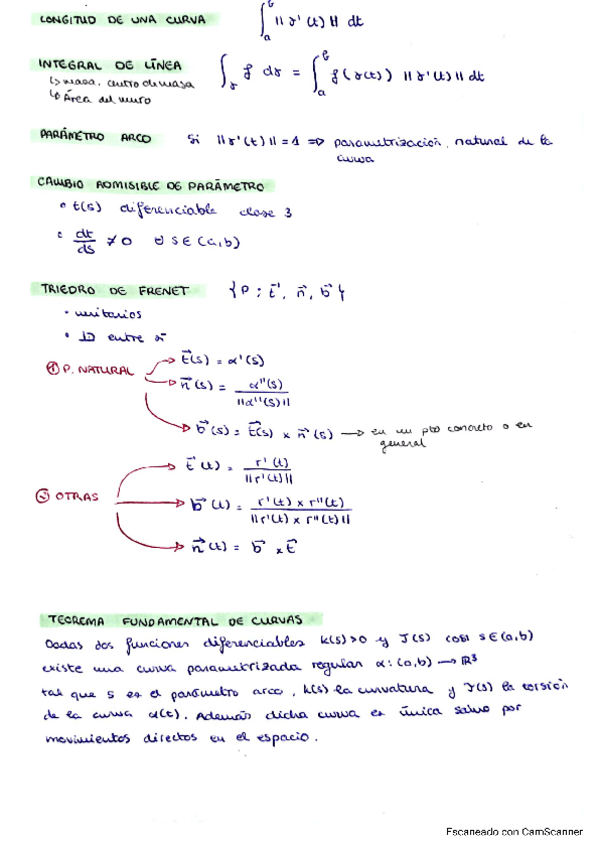 LONGITUD DE UNA CURVA ∫_a^b ||γ'(t)|| dt
INTEGRAL DE LÍNEA ∫_γ f dγ = ∫_a^b f(γ(t)) ||γ'(t)|| dt
↳ masa, centro de masa
↳ Área del muro
PARÁMETRO ARCO Si ||γ'(t)|| = 1 => parametrización natural de la
curva
CAMBIO ADMISIBLE DE PARÁMETRO
• t(s) diferenciable clase 3
• dt/ds ≠ 0 ∀ s ∈ (a,b)
TRIEDRO DE FRENET {P; t⃗, n⃗, b⃗}
• unitarios
• ⊥ entre sí
① P. NATURAL
t⃗(s) = α'(s)
n⃗(s) = α''(s) / ||α''(s)||
b⃗(s) = t⃗(s) x n⃗(s) → en un pto concreto o en
general
② OTRAS
t⃗(t) = r'(t) / ||r'(t)||
b⃗(t) = r'(t) x r''(t) / ||r'(t) x r''(t)||
n⃗(t) = b⃗ x t⃗
TEOREMA FUNDAMENTAL DE CURVAS
Dadas dos funciones diferenciables k(s)>0 y J(s) con s∈(a,b)
existe una curva parametrizada regular α: (a,b) → ℝ³
tal que s es el parámetro arco, k(s) la curvatura y J(s) la torsión
de la curva α(t). Además dicha curva es única salvo por
movimientos directos en el espacio.
Escaneado con CamScanner